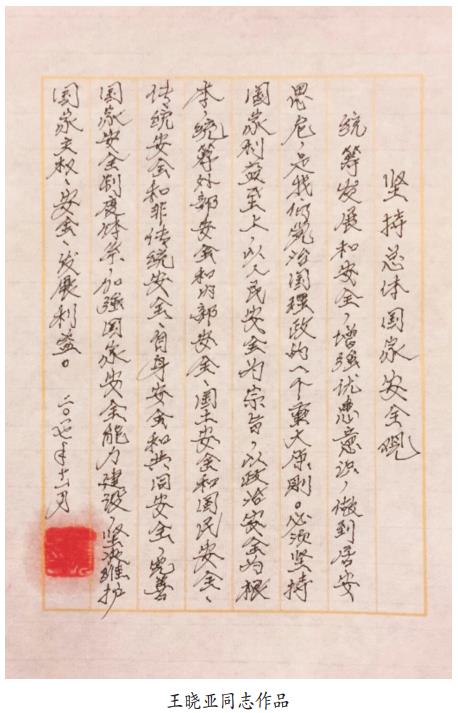 坚持总体国家安全观
统筹发展和安全，增强忧患意识，做到居安
思危，是我们党治国理政的一个重大原则。必须坚持
国家利益至上，以人民安全为宗旨，以政治安全为根
本，统筹外部安全和内部安全、国土安全和国民安全、
传统安全和非传统安全、自身安全和共同安全，完善
国家安全制度体系，加强国家安全能力建设，坚决维护
国家主权、安全、发展利益。 二〇一七年十一月
王晓亚同志作品